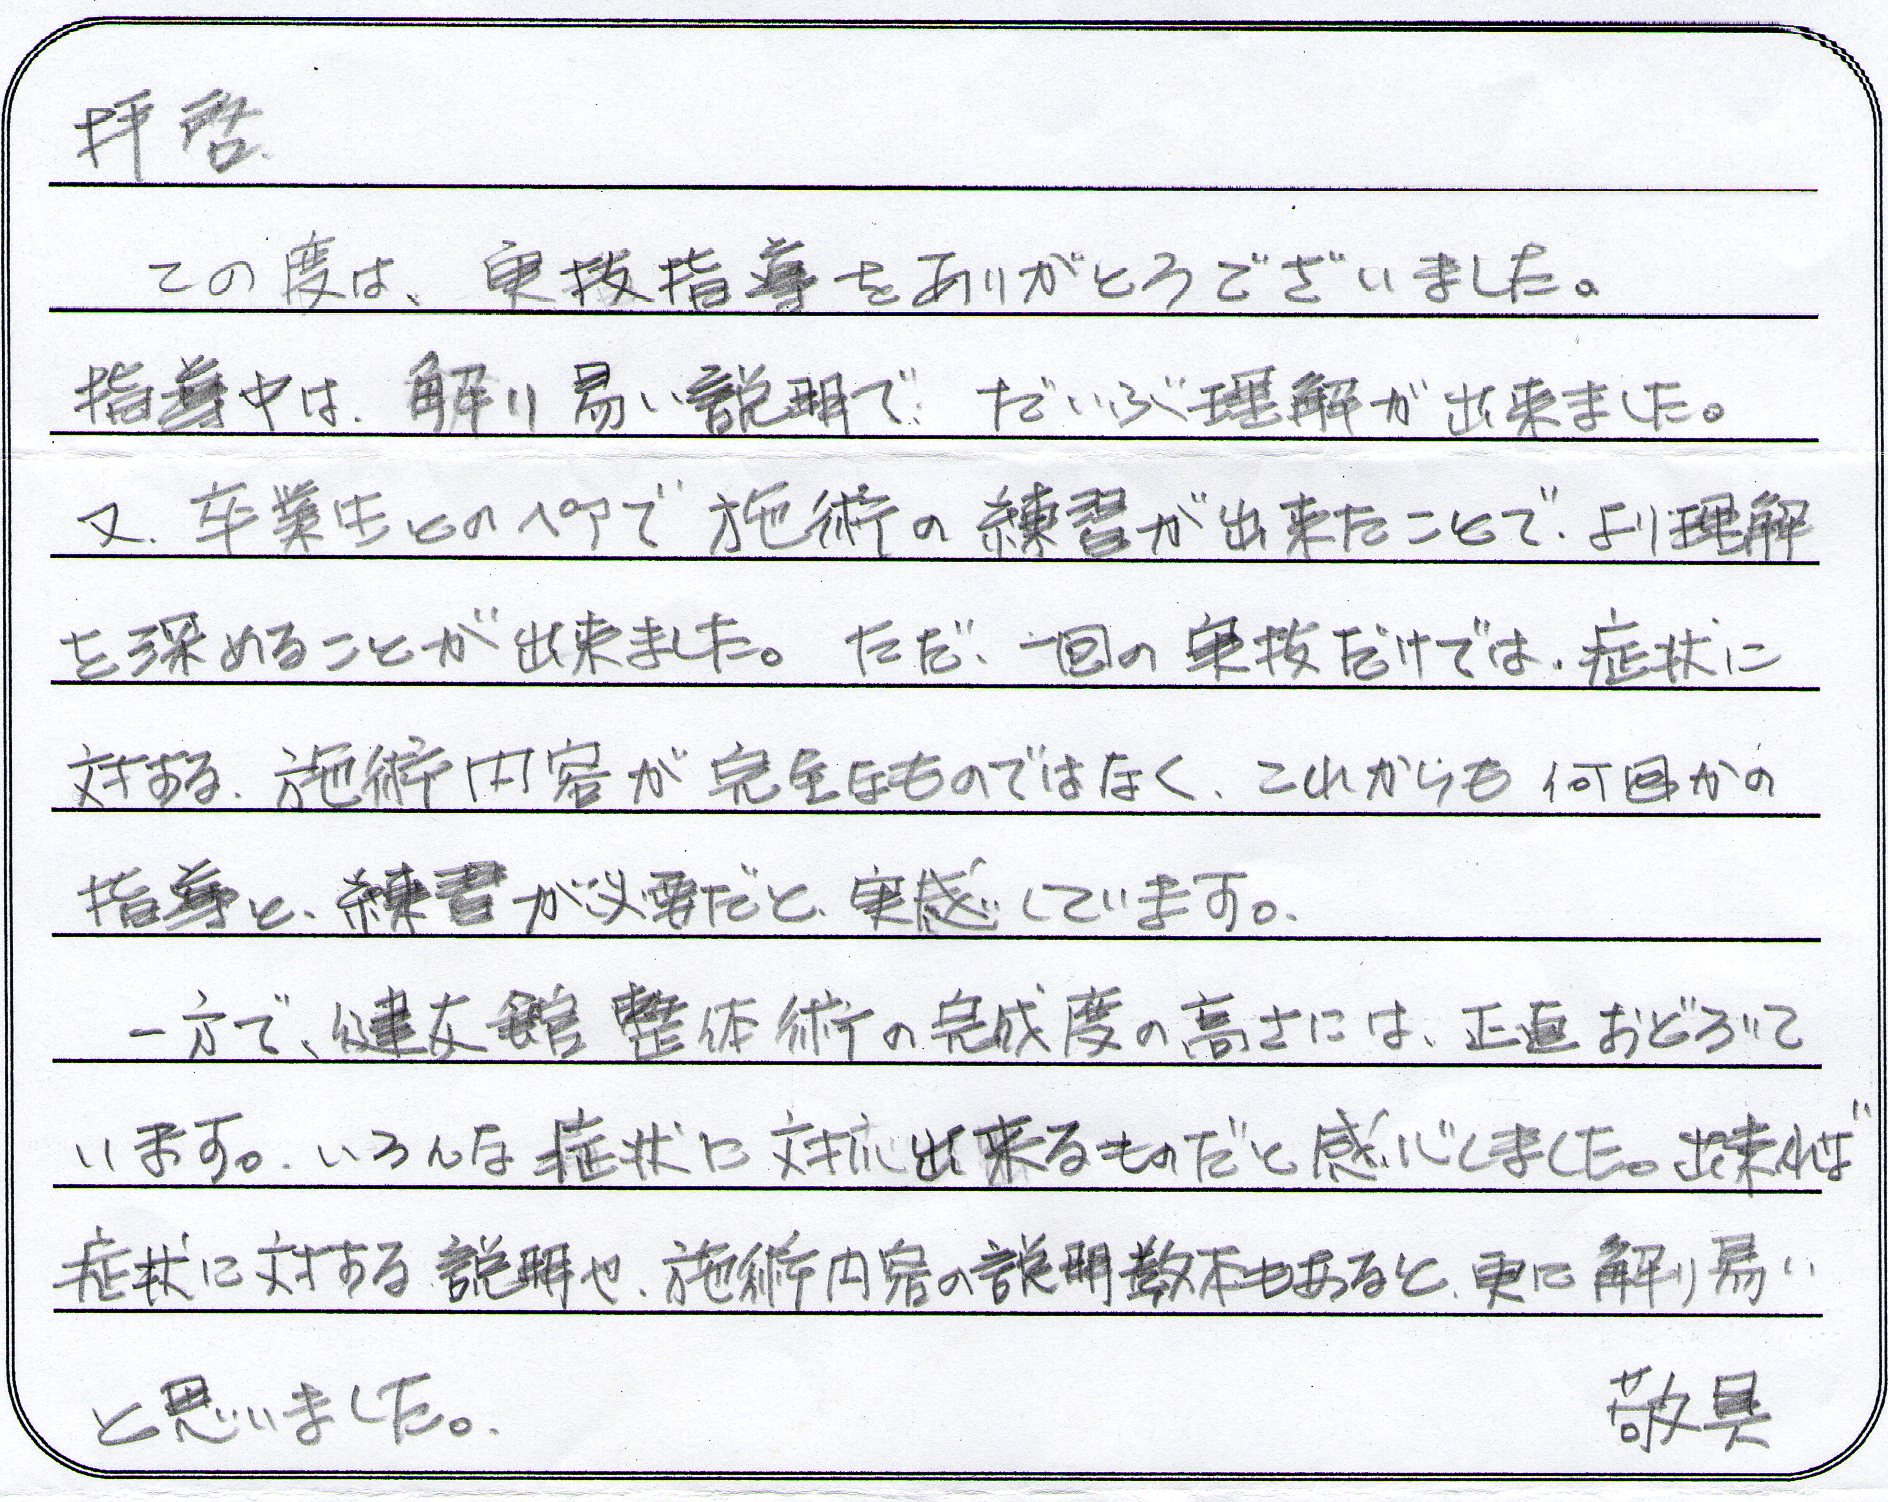 拝啓
この度は、実技指導をありがとうございました。
指導中は、解り易い説明で、だいぶ理解が出来ました。
又、卒業生とのペアで施術の練習が出来たことで、より理解
を深めることが出来ました。ただ、一回の実技だけでは、症状に
対する、施術内容が完全なものではなく、これからも何回かの
指導と、練習が必要だと、実感しています。
一方で、健友館整体術の完成度の高さには、正直おどろいて
います。いろんな症状に対応出来るものだと感心しました。出来れば
症状に対する説明や、施術内容の説明数本もあると、更に解り易い
と思いました。 敬具